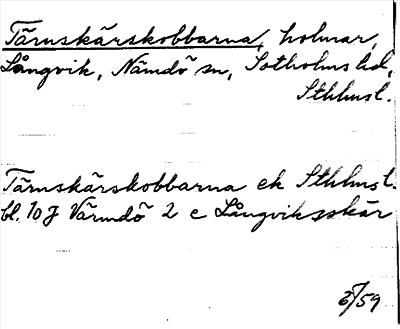 Tärnskärskobbarna, holmar,
Långvik, Nämdö sn, Sotholms hd,
Sthlmsl.
Tärnskärskobbarna ek Sthlmsl.
bl. 10 J Värmdö 2 c Långviksskär
/59